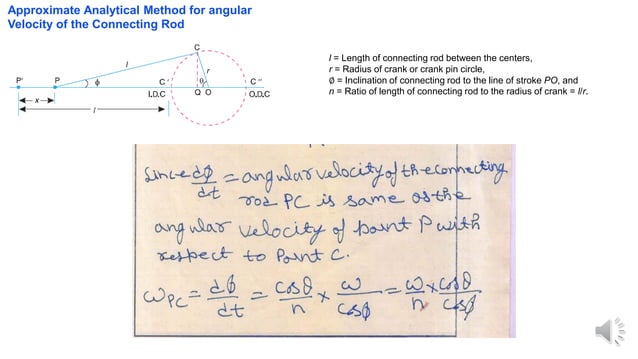 Approximate Analytical Method for angular
Velocity of the Connecting Rod
C
l
r
P' P ϕ C ' θ C ''
x I.D.C Q O O.D.C
l
l = Length of connecting rod between the centers,
r = Radius of crank or crank pin circle,
ϕ = Inclination of connecting rod to the line of stroke PO, and
n = Ratio of length of connecting rod to the radius of crank = l/r.
Since dϕ/dt = angular velocity of the connecting
rod PC is same as the
angular velocity of point P with
respect to Point C.
ω_PC = dϕ/dt = cosθ/n × ω/cosϕ = ω/n × cosθ/cosϕ